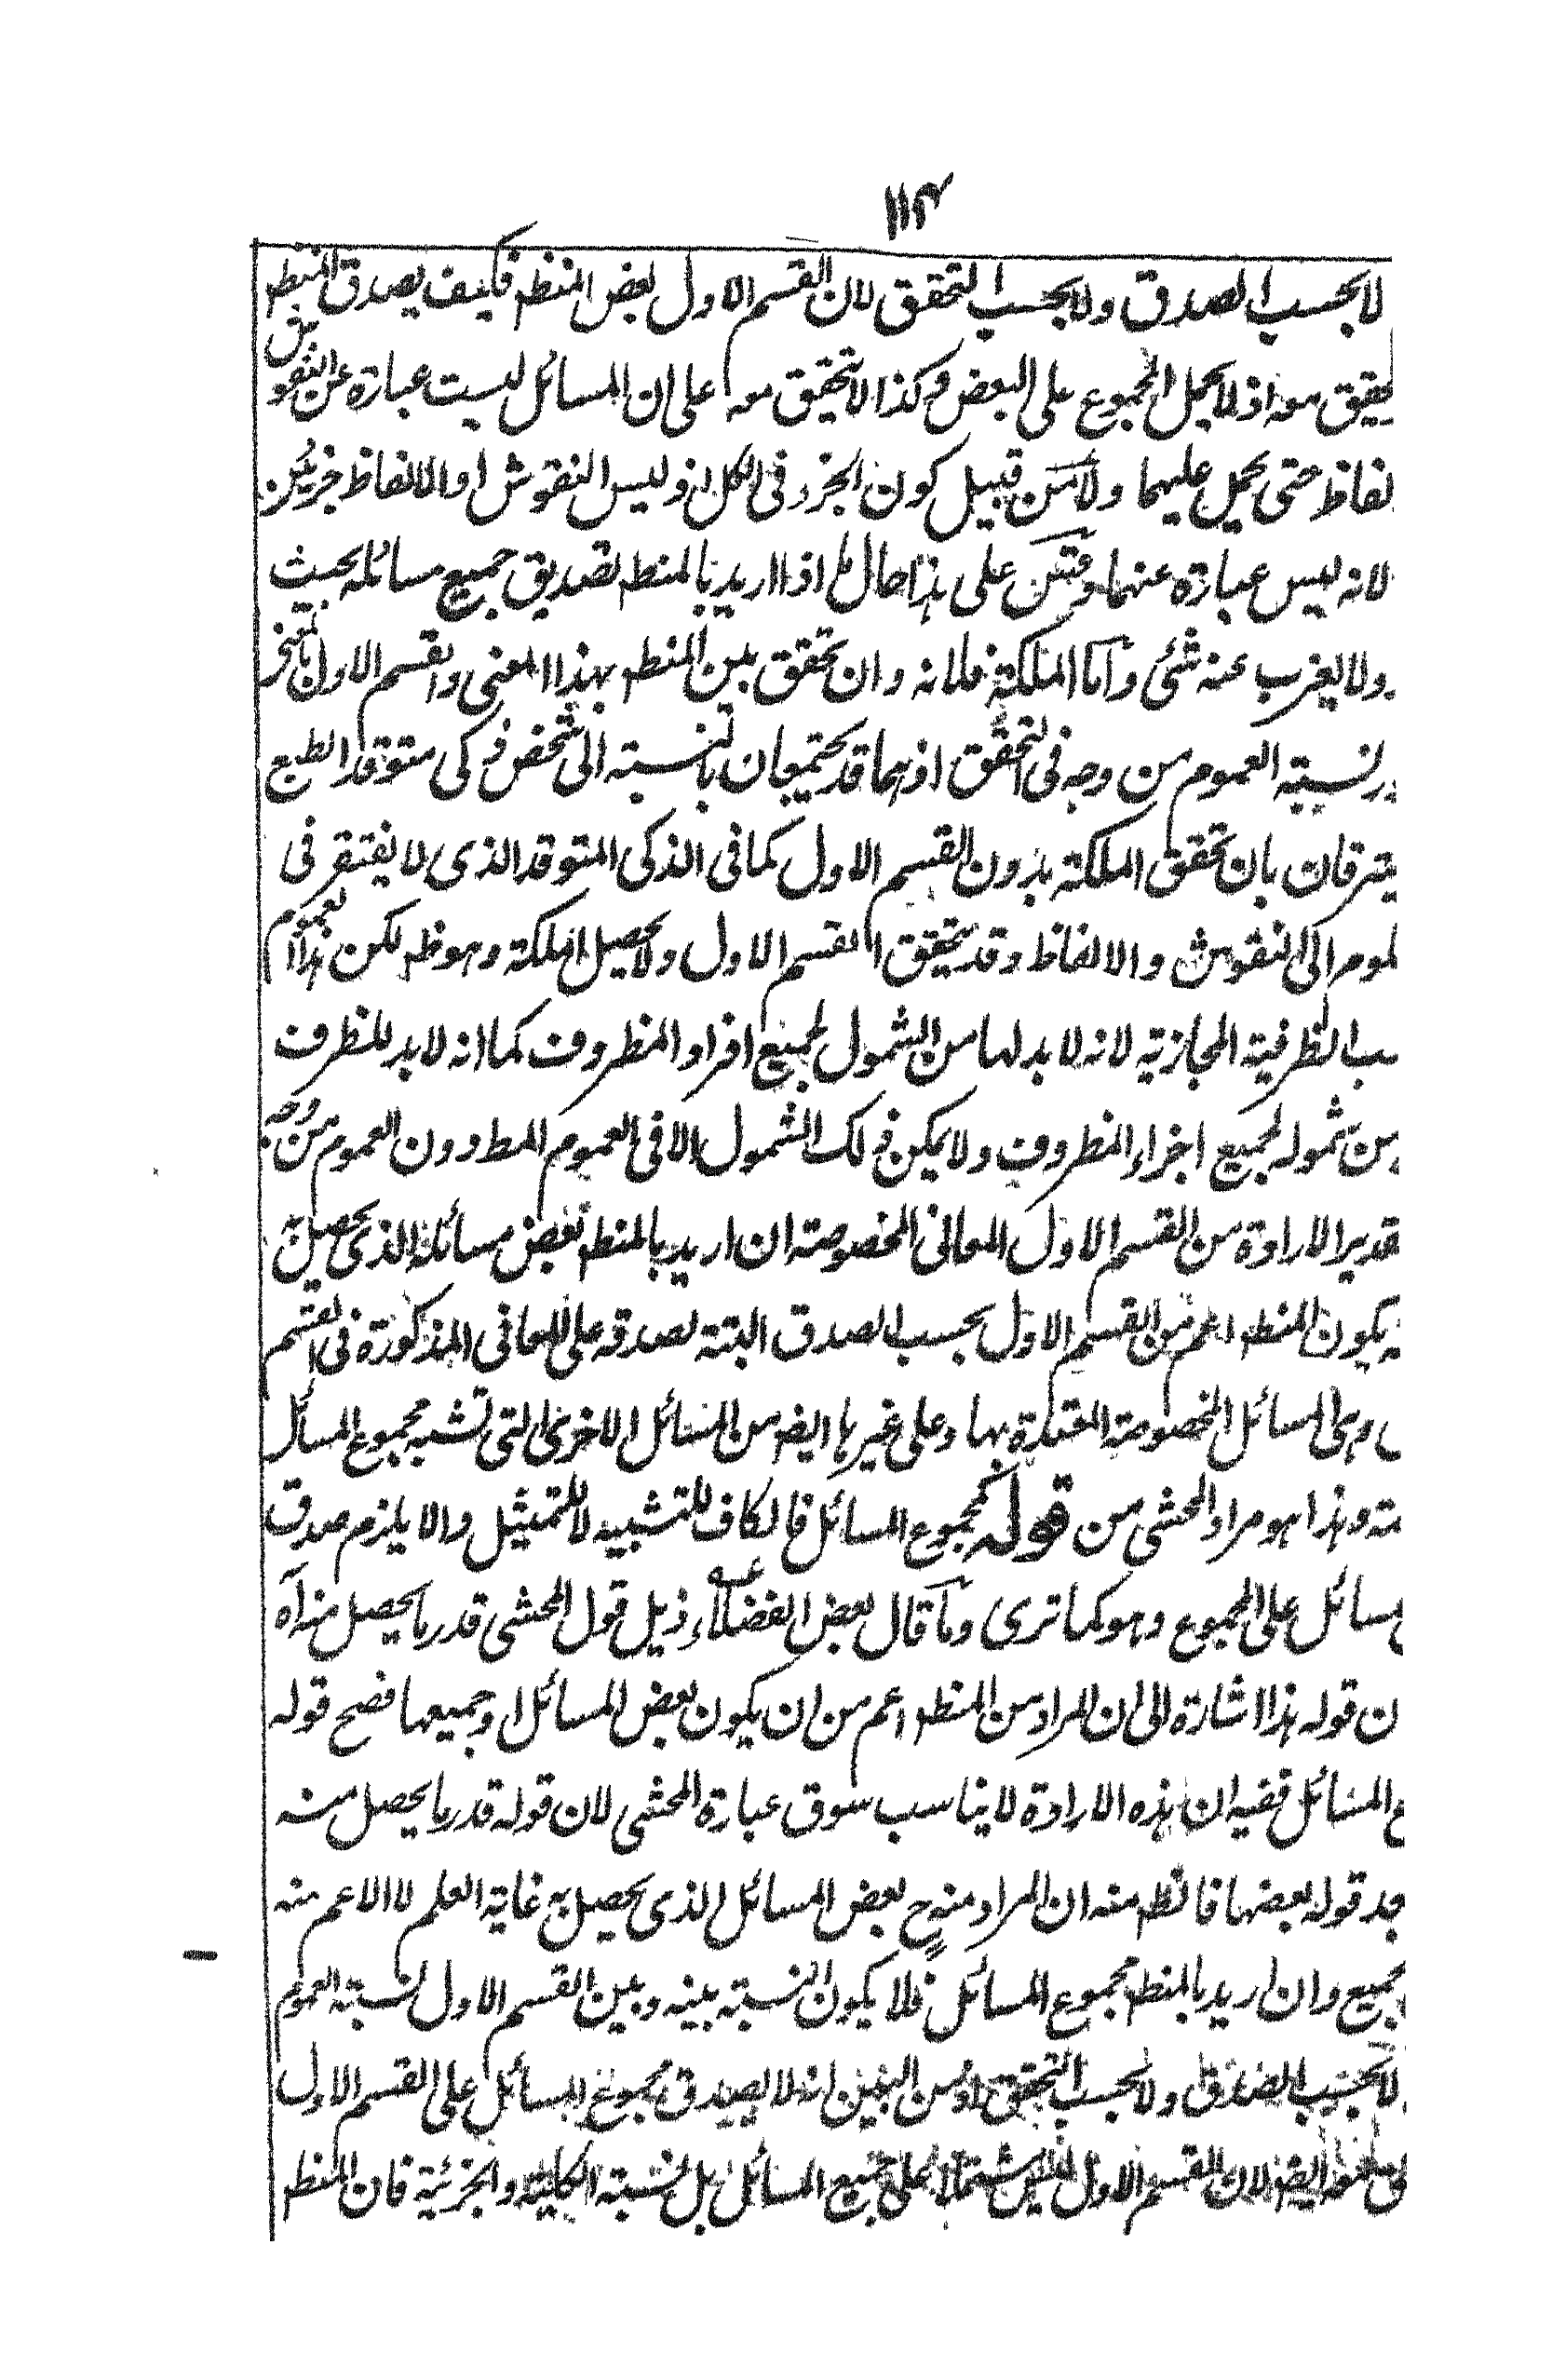 ۱۱۴
لا بحسب الصدق ولا بحسب التحقق لان القسم الاول بعض المنطـ فكيف يصدق المنطـ
يحقيق معه اذ لا يحمل المجموع على البعض وكذا لا تحقيق معه على ان المسائل ليست عبارة عن النقوش
لفاظ حتى يحمل عليهما ولا من قبيل كون الجزء فى الكل اذ ليس النقوش او الالفاظ جزئين
لانه ليس عبارة عنهما وقس على هذا حال ما اذا اريد بالمنطـ تصديق جميع مسائله بحيث
ولا يعزب عنه شئ واما الملكة فلانه وان تحقق بين المنطـ بهذا المعنى والقسم الاول
نسبته العموم من وجه فى التحقق اذ هما قد يجتمعان بالنسبته الى شخص ذكى متوقد الطبع
يفترقان بان تحقق الملكة بدون القسم الاول كما فى الذكى المتوقد الذى لا يفتقر فى
لموم الى النقوش والالفاظ وقد يتحقق القسم الاول ولا يحصل الملكة وهو ظـ لكن هذا العموم
سب الظرفية المجازية لانه لا بد لها من الشمول لجميع افراد المظروف كما انه لا بد للظرف
من شموله لجميع اجزاء المظروف ولا يمكن ذلك الشمول الا فى العموم المط دون العموم من وجه
قدير الارادة من القسم الاول المعانى المخصوصة ان اريد بالمنطـ بعض مسائله الذى يحصل به
يكون المنطـ اعم من القسم الاول بحسب الصدق البتة لصدقه على المعانى المذكورة فى القسم
وهى المسائل المخصوصة المعتبرة بها وعلى غيرها ايضـ من المسائل الاخرى التى تشبه مجموع المسائل
ـته وهذا هو مراد المحشى من قوله كمجموع المسائل فالكاف للتشبيه لا للتمثيل والا يلزم صدق
مسائل على المجموع وهو كما ترى وما قال بعض الفضلاء ذيل قول المحشى قدر ما يحصل منه آه
ن قوله هذا اشارة الى ان المراد من المنطـ اعم من ان يكون بعض المسائل او جميعها فصح قوله
ع المسائل ففيه ان هذه الارادة لا يناسب سوق عبارة المحشى لان قوله قدر ما يحصل منه
جد قوله بعضها فالظـ منه ان المراد منه ح بعض المسائل الذى يحصل به غاية العلم لا الاعم منه
جميع وان اريد بالمنطـ مجموع المسائل فلا يكون النسبته بينه وبين القسم الاول نسبته العموم
لا بحسب الصدق ولا بحسب التحقق اذ من البين انه لا يصدق مجموع المسائل على القسم الاول
معه ايضـ لان القسم الاول ليس مشتملا على جميع المسائل بل نسبته الكلية والجزئية فان المنطـ